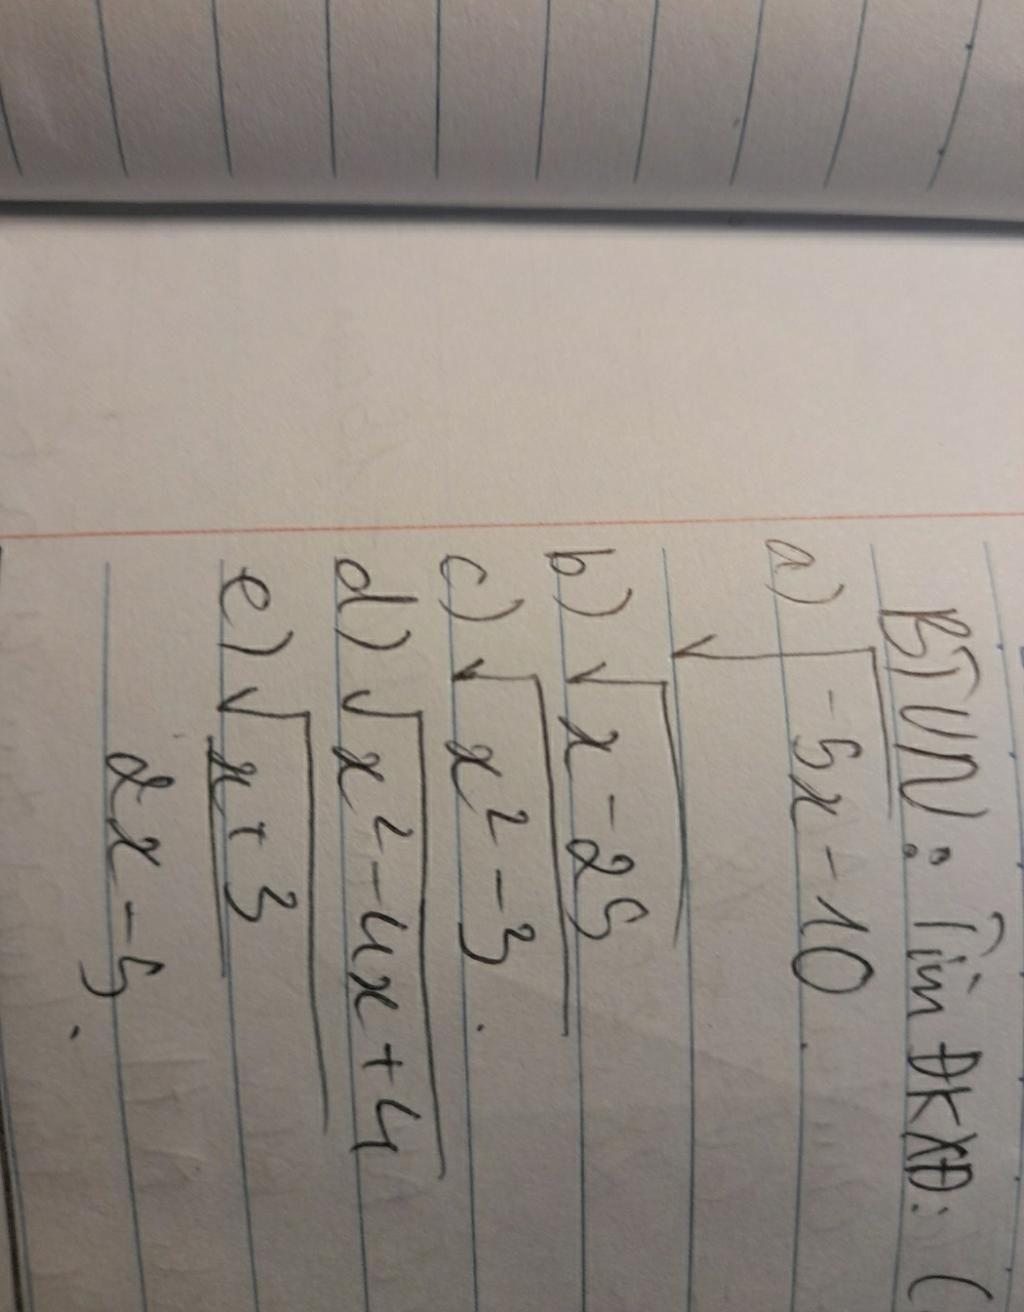 BTVN: Tìm ĐKXĐ: (
a) √-5x-10
b) √x-25
c) √x²-3.
d) √x²-4x+4
e) √x+3
2x-5.